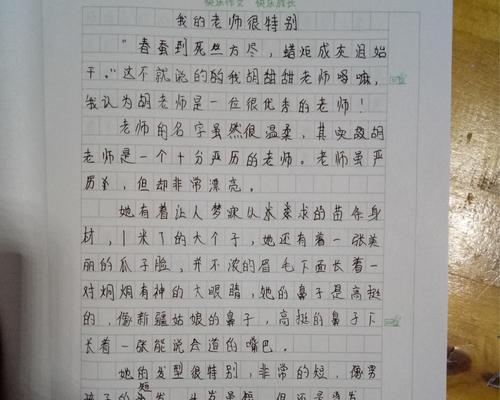 快乐作文 快乐成长
我的老师很特别
“春蚕到死丝方尽，蜡炬成灰泪始
干。”这不就说的的我胡甜甜老师吗嘛，
我认为胡老师是一位很优秀的老师！
老师的名字虽然很温柔，其实敌胡
老师是一个十分严历的老师。老师虽严
历，但却非常漂亮。
她有着让人梦寐以求的苗条身
材，1米了的大个子，她还有着一张美
丽的瓜子脸，并不浓的眉毛下面长着一
对炯炯有神的大眼睛，她的鼻子是高挺
的，像新疆姑娘的鼻子，高挺的鼻子下
长着一张能说会道的嘴巴。
她的发型很特别，非常的短，像男
孩子的短发